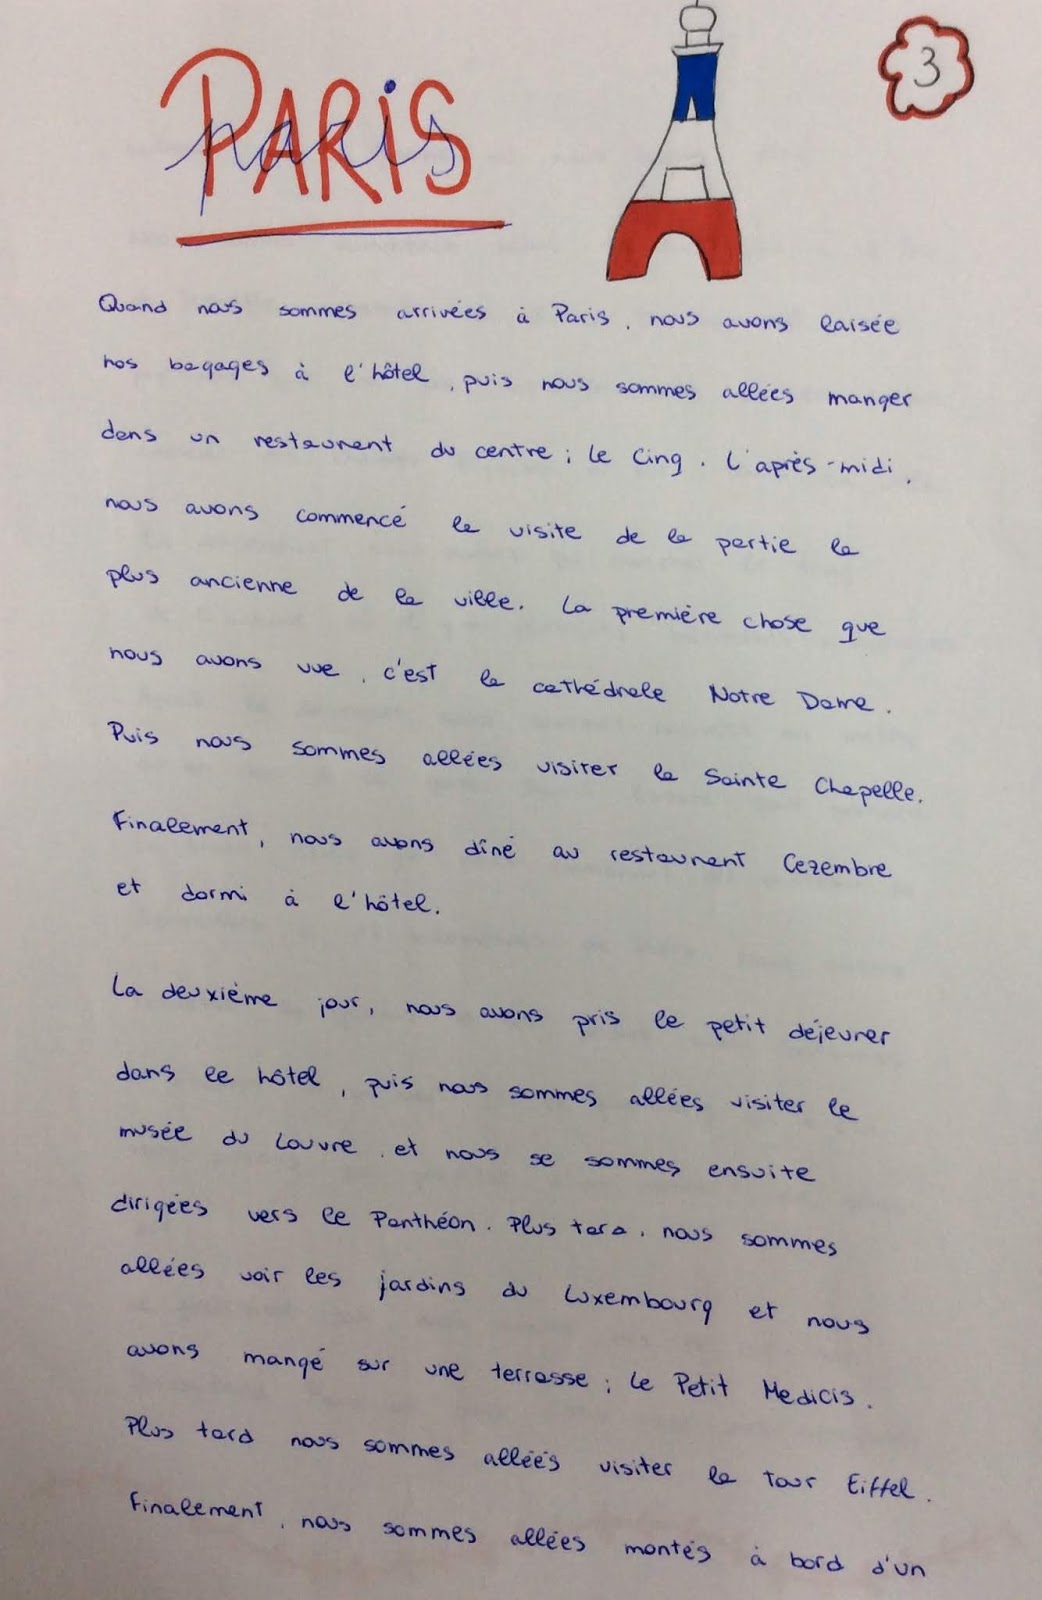 PARIS
paris
3
Quand nous sommes arrivées à Paris, nous avons laisée
nos bagages à l'hôtel, puis nous sommes allées manger
dans un restaurant du centre; Le Cinq. L'après-midi,
nous avons commencé la visite de la partie la
plus ancienne de la ville. La première chose que
nous avons vue, c'est la cathédrale Notre Dame.
Puis nous sommes allées visiter la Sainte Chapelle.
Finalement, nous avons dîné au restaurant Cezembre
et dormi à l'hôtel.
La deuxième jour, nous avons pris le petit déjeuner
dans le hôtel, puis nous sommes allées visiter le
musée du Louvre, et nous se sommes ensuite
dirigées vers le Panthéon. Plus tard, nous sommes
allées voir les jardins du Luxembourg et nous
avons mangé sur une terrasse; Le Petit Medicis.
Plus tard nous sommes allées visiter la tour Eiffel.
Finalement, nous sommes allées montés à bord d'un